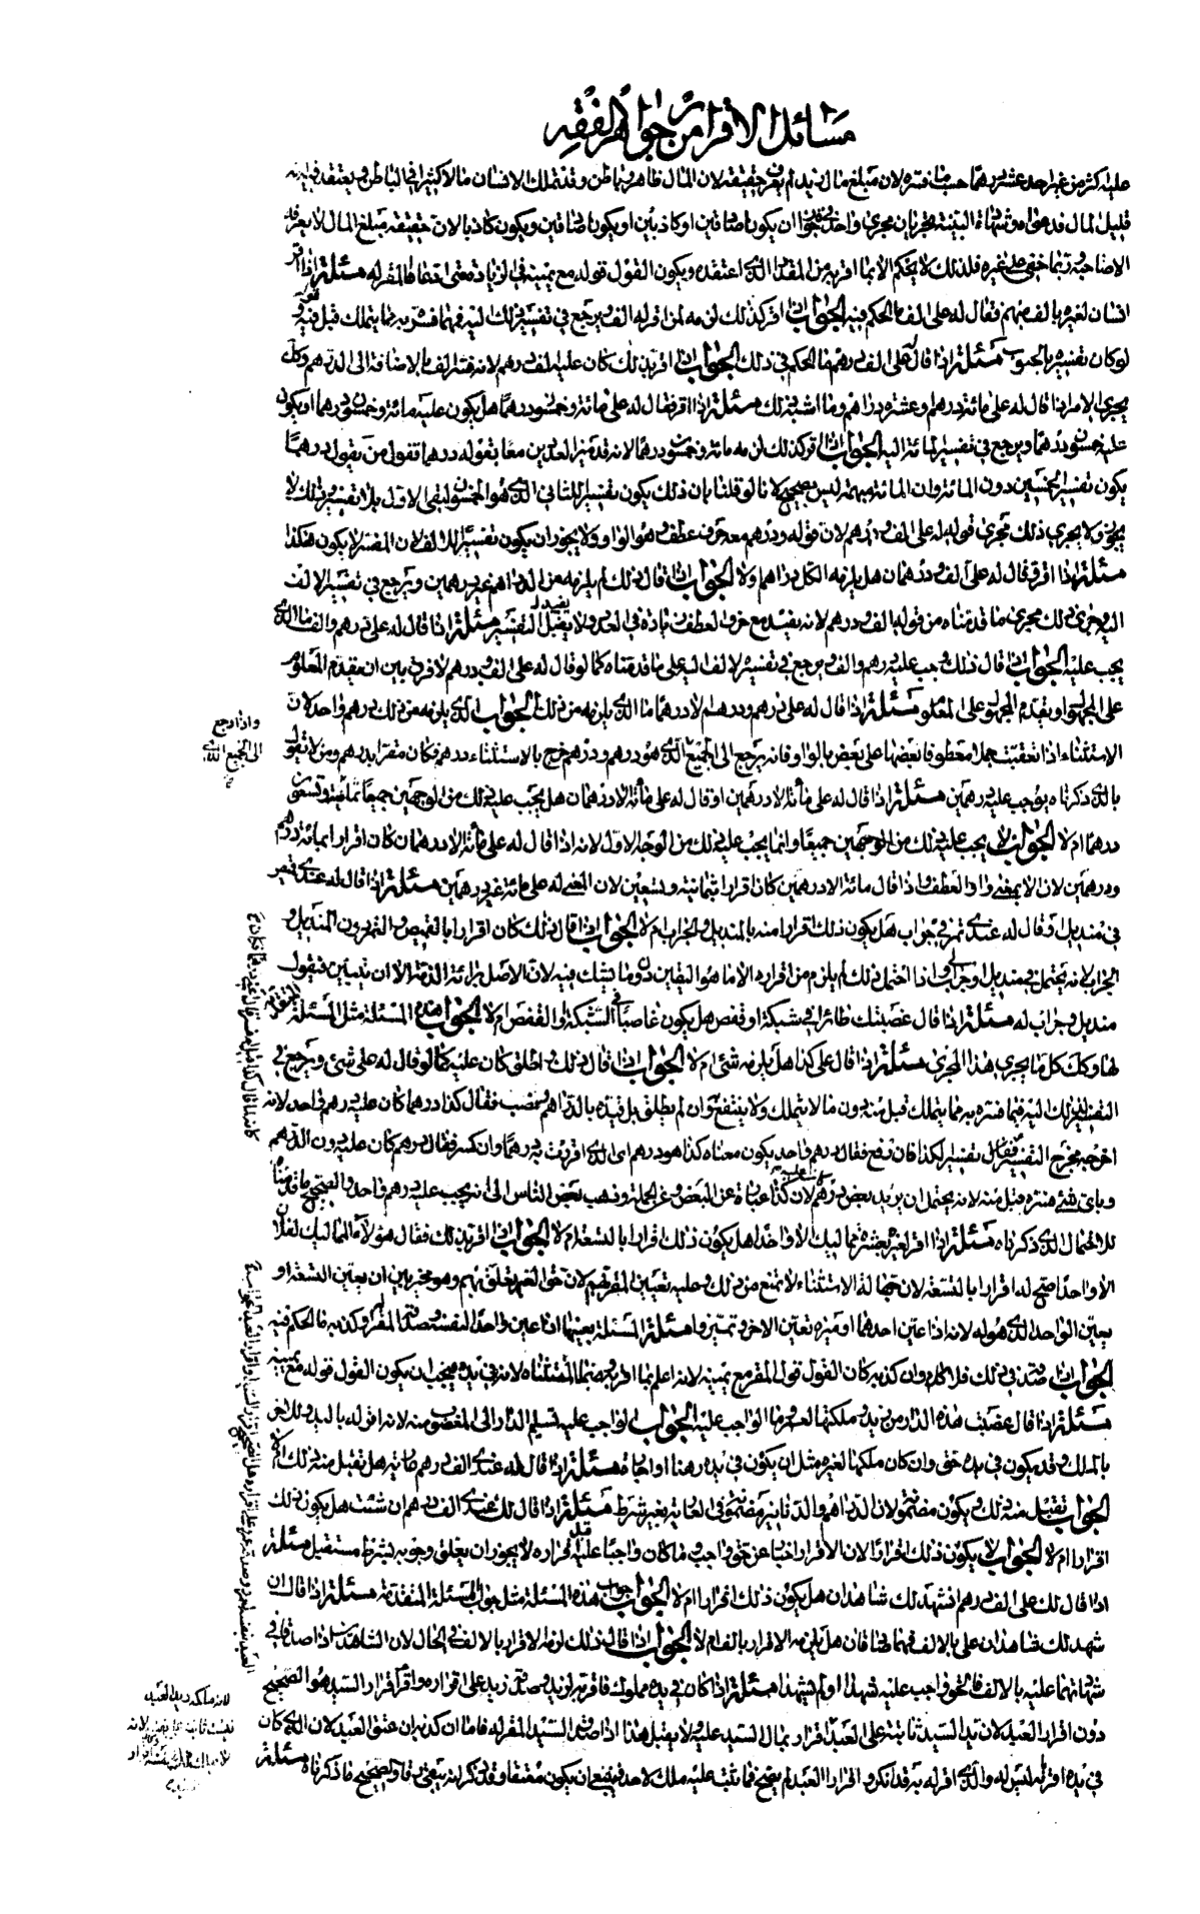 مسائل الاقرار من جواهر الفقه
عليه اكثر من غير احد عشر درهما حسب ما فسره لان مبلغ مال زيد لم يعرف حقيقته لان المال ظاهر وباطن وقد يملك الانسان مالا كثيرا في الباطن ويعتقد فيه انه
قليل المال قد هو او شهادة البينة يجريان مجرى واحد في جواز ان يكونا صادقين او كاذبين او يكونا صادقين ويكون كاذبا لان حقيقة مبلغ المال لا يعرفه
الا صاحبه وربما خفى على غيره فلذلك لا يحكم الا بما اقر به من المقدار الذي اعتقده ويكون القول قوله مع يمينه في الزيادة متى ادعاها المقر له مسئلة اذا اقر
انسان لغيره بالف مبهم فقال له على الف ما الحكم فيه الجواب اذا اقر كذلك لزمه لمن اقر له الف ويرجع في تفسير ذلك اليه فمهما فسره به مما يتملك قبل منه و
لو كان تفسيره بالحبوب مسئلة اذا قال له على الف درهم ما الحكم في ذلك الجواب اذا اقر بذلك كان عليه الف درهم لانه فسر الف بالاضافة الى الدرهم وكك
يجري الامر اذا قال له على مائة درهم وعشرة دراهم وما اشبه ذلك مسئلة اذا اقر فقال له على مائة وخمسون درهما هل يكون عليه مائة وخمسون درهما او يكون
عليه خمسون درهما ويرجع في تفسير المائة اليه الجواب اذا اقر كذلك لزمه مائة وخمسون درهما لانه قد ميز العددين معا بقوله درهما فقول من يقول درهما
يكون تفسير الخمسين دون المائة وان المائة مبهمة ليس بصحيح لانا لو قلنا بان ذلك يكون تفسيرا للثاني الذي هو الخمسون لبقى الاول بلا تفسير وذلك لا
يجوز ولا يجري ذلك مجرى قوله له على الف ودرهم لان قوله ودرهم معه حرف عطف وهو الواو ولا يجوز ان يكون تفسيرا للالف لان المفسر لا يكون هكذا
مسئلة اذا اقر فقال له على الف ودرهمان هل يلزمه الكل دراهم ام لا الجواب اذا قال ذلك لم يلزمه من الدراهم غير درهمين ويرجع في تفسير الالف
اليه وجرى ذلك مجرى ما قدمناه من قوله الف ودرهم لانه يفيد مع حرف العطف زيادة في العدد ولا يفيد التفسير مسئلة اذا قال له على درهم والف ما الذي
يجب عليه الجواب اذا قال ذلك وجب عليه درهم والف ويرجع في تفسير الالف اليه على ما قدمناه كما لو قال له على الف ودرهم لا فرق بين ان يقدم المعلوم
على المجهول او يقدم المجهول على المعلوم مسئلة اذا قال له على درهم ودرهم الا درهما ما الذي يلزمه من ذلك الجواب الذي يلزمه من ذلك درهم واحد لان
الاستثناء اذا تعقب جملا معطوفا بعضها على بعض بالواو فانه يرجع الى الجميع الذي هو درهم ودرهم خرج بالاستثناء درهم فكان مقرا بدرهم ومن لا يقول
واذا رجع
الى الجميع الذي
بالذي ذكرناه يوجب عليه درهمين مسئلة اذا قال له على مائة الا درهمين او قال له على مائة الا درهمان هل يجب عليه ذلك من الوجهين جميعا ثمانية وتسعون
درهما ام لا الجواب لا يجب عليه ذلك من الوجهين جميعا وانما يجب عليه ذلك من الوجه الاول لانه اذا قال له على مائة الا درهمان كان اقرارا بمائة درهم
ودرهمين لان الا بمعنى واو العطف واذا قال مائة الا درهمين كان اقرارا بثمانية وتسعين لان المعنى له على مائة غير درهمين مسئلة اذا قال له عندي قميص
في منديل او قال له عندي تمر في جراب هل يكون ذلك اقرارا منه بالمنديل والجراب ام لا الجواب اذا قال ذلك كان اقرارا بالقميص والتمر دون المنديل و
الجراب لانه يحتمل في منديل او جراب لي واذا احتمل ذلك لم يلزم من اقراره الا ما هو اليقين دون ما يشك فيه لان الاصل براءة الذمة الا ان يتبين فيقول
منديل وجراب له مسئلة اذا قال غصبتك طائرا في شبكة او قفص هل يكون غاصبا للشبكة والقفص ام لا الجواب هذه المسئلة مثل المسئلة المتقدمة
لها وكك كل ما يجري هذا المجرى مسئلة اذا قال على كذا هل يلزمه شئ ام لا الجواب اذا قال ذلك واطلق كان عليه كما لو قال له على شئ ويرجع في
التفسير لذلك اليه فيما فسره به مما يتملك قبل منه دون ما لا يتملك ولا ينتفع به وان لم يطلق بل قيده بالدراهم ونصب فقال كذا درهما كان عليه درهم واحد لانه
اخرجه مخرج التفسير فكل تفسير لكذا فان رفع فقال درهم واحد يكون معناه كذا هو درهم اي الذي اقررت به درهما وان كسر فقال درهم كان عليه دون الدرهم
وباي شئ فسره قبل منه لانه يحتمل ان يريد بعض درهم لان كذا عبارة عن البعض وعن الجملة وذهب بعض الناس الى انه يجب عليه درهم واحد والصحيح ما قدمناه
للاحتمال الذي ذكرناه مسئلة اذا اقر لغيره بعشرة مماليك الا واحدا هل يكون ذلك اقرارا بالتسعة ام لا الجواب اذا اقر بذلك فقال هؤلاء المماليك لفلان
الا واحدا صح له اقرارا بالتسعة لان جهالة الاستثناء لا تمنع من ذلك وعليه تعيين المقر بهم لان حق الغير تعلق بهم وهو مخير بين ان يعين التسعة او
يعين الواحد الذي هو له لانه اذا عين احدهما او ميزه تعين الاخر وتميز مسئلة المسئلة بعينها اذا عين واحدا لنفسه وصدقه المقر له او كذبه ما الحكم فيه
الجواب ان صدقه في ذلك فلا كلام وان كذبه كان القول قول المقر مع يمينه لانه اعلم بما اقر به وبما استثناه لانه في يده فيجب ان يكون القول قوله مع يمينه
مسئلة اذا قال غصبت هذه الدار من زيد وملكها لعمرو ما الواجب عليه الجواب الواجب عليه تسليم الدار الى المغصوب منه لانه اقر له باليد وللاخر
بالملك وقد يكون في يده بحق وان كان ملكها لغيره مثل ان يكون في يده رهنا او اجارة مسئلة اذا قال له عندي الف درهم عارية هل تقبل منه ذلك ام لا
الجواب تقبل منه ذلك ويكون مضمونة لان الدراهم والدنانير مضمونة في العارية بغير شرط مسئلة اذا قال لك عندي الف درهم ان شئت هل يكون ذلك
اقرارا ام لا الجواب لا يكون ذلك اقرارا لان الاقرار اخبار عن حق واجب وما كان واجبا عليه قبل اقراره لا يجوز ان يعلق وجوبه بشرط مستقبل مسئلة
اذا قال لك على الف درهم ان شهد لك شاهدان هل يكون ذلك اقرارا ام لا الجواب جواب هذه المسئلة مثل جواب المسئلة المتقدمة مسئلة اذا قال ان
شهد لك شاهدان على بالالف فهما صادقان هل يلزمه الاقرار بالف ام لا الجواب اذا قال ذلك لزمه الاقرار بالالف في الحال لان الشاهدين اذا صدقا في
شهادتهما عليه بالالف فالحق واجب عليه شهدا او لم يشهدا مسئلة اذا كان في يده مملوك فاقر به لزيد وصدق زيد على اقراره واقرار السيد هو الصحيح
دون اقرار العبد لان يد السيد ثابتة على العبد واقراره بمال السيد عليه ولا يقبل هذا اذا صدق السيد المقر له فاما ان كذبه عتق العبد لان الذي كان
في يده اقر انه ليس له والذي اقر له به قد انكر واقرار العبد لم يصح فما ثبت عليه ملك لاحد فينبغي ان يكون معتقا وقد ذكر انه يبقى رقا والصحيح ما ذكرناه مسئلة